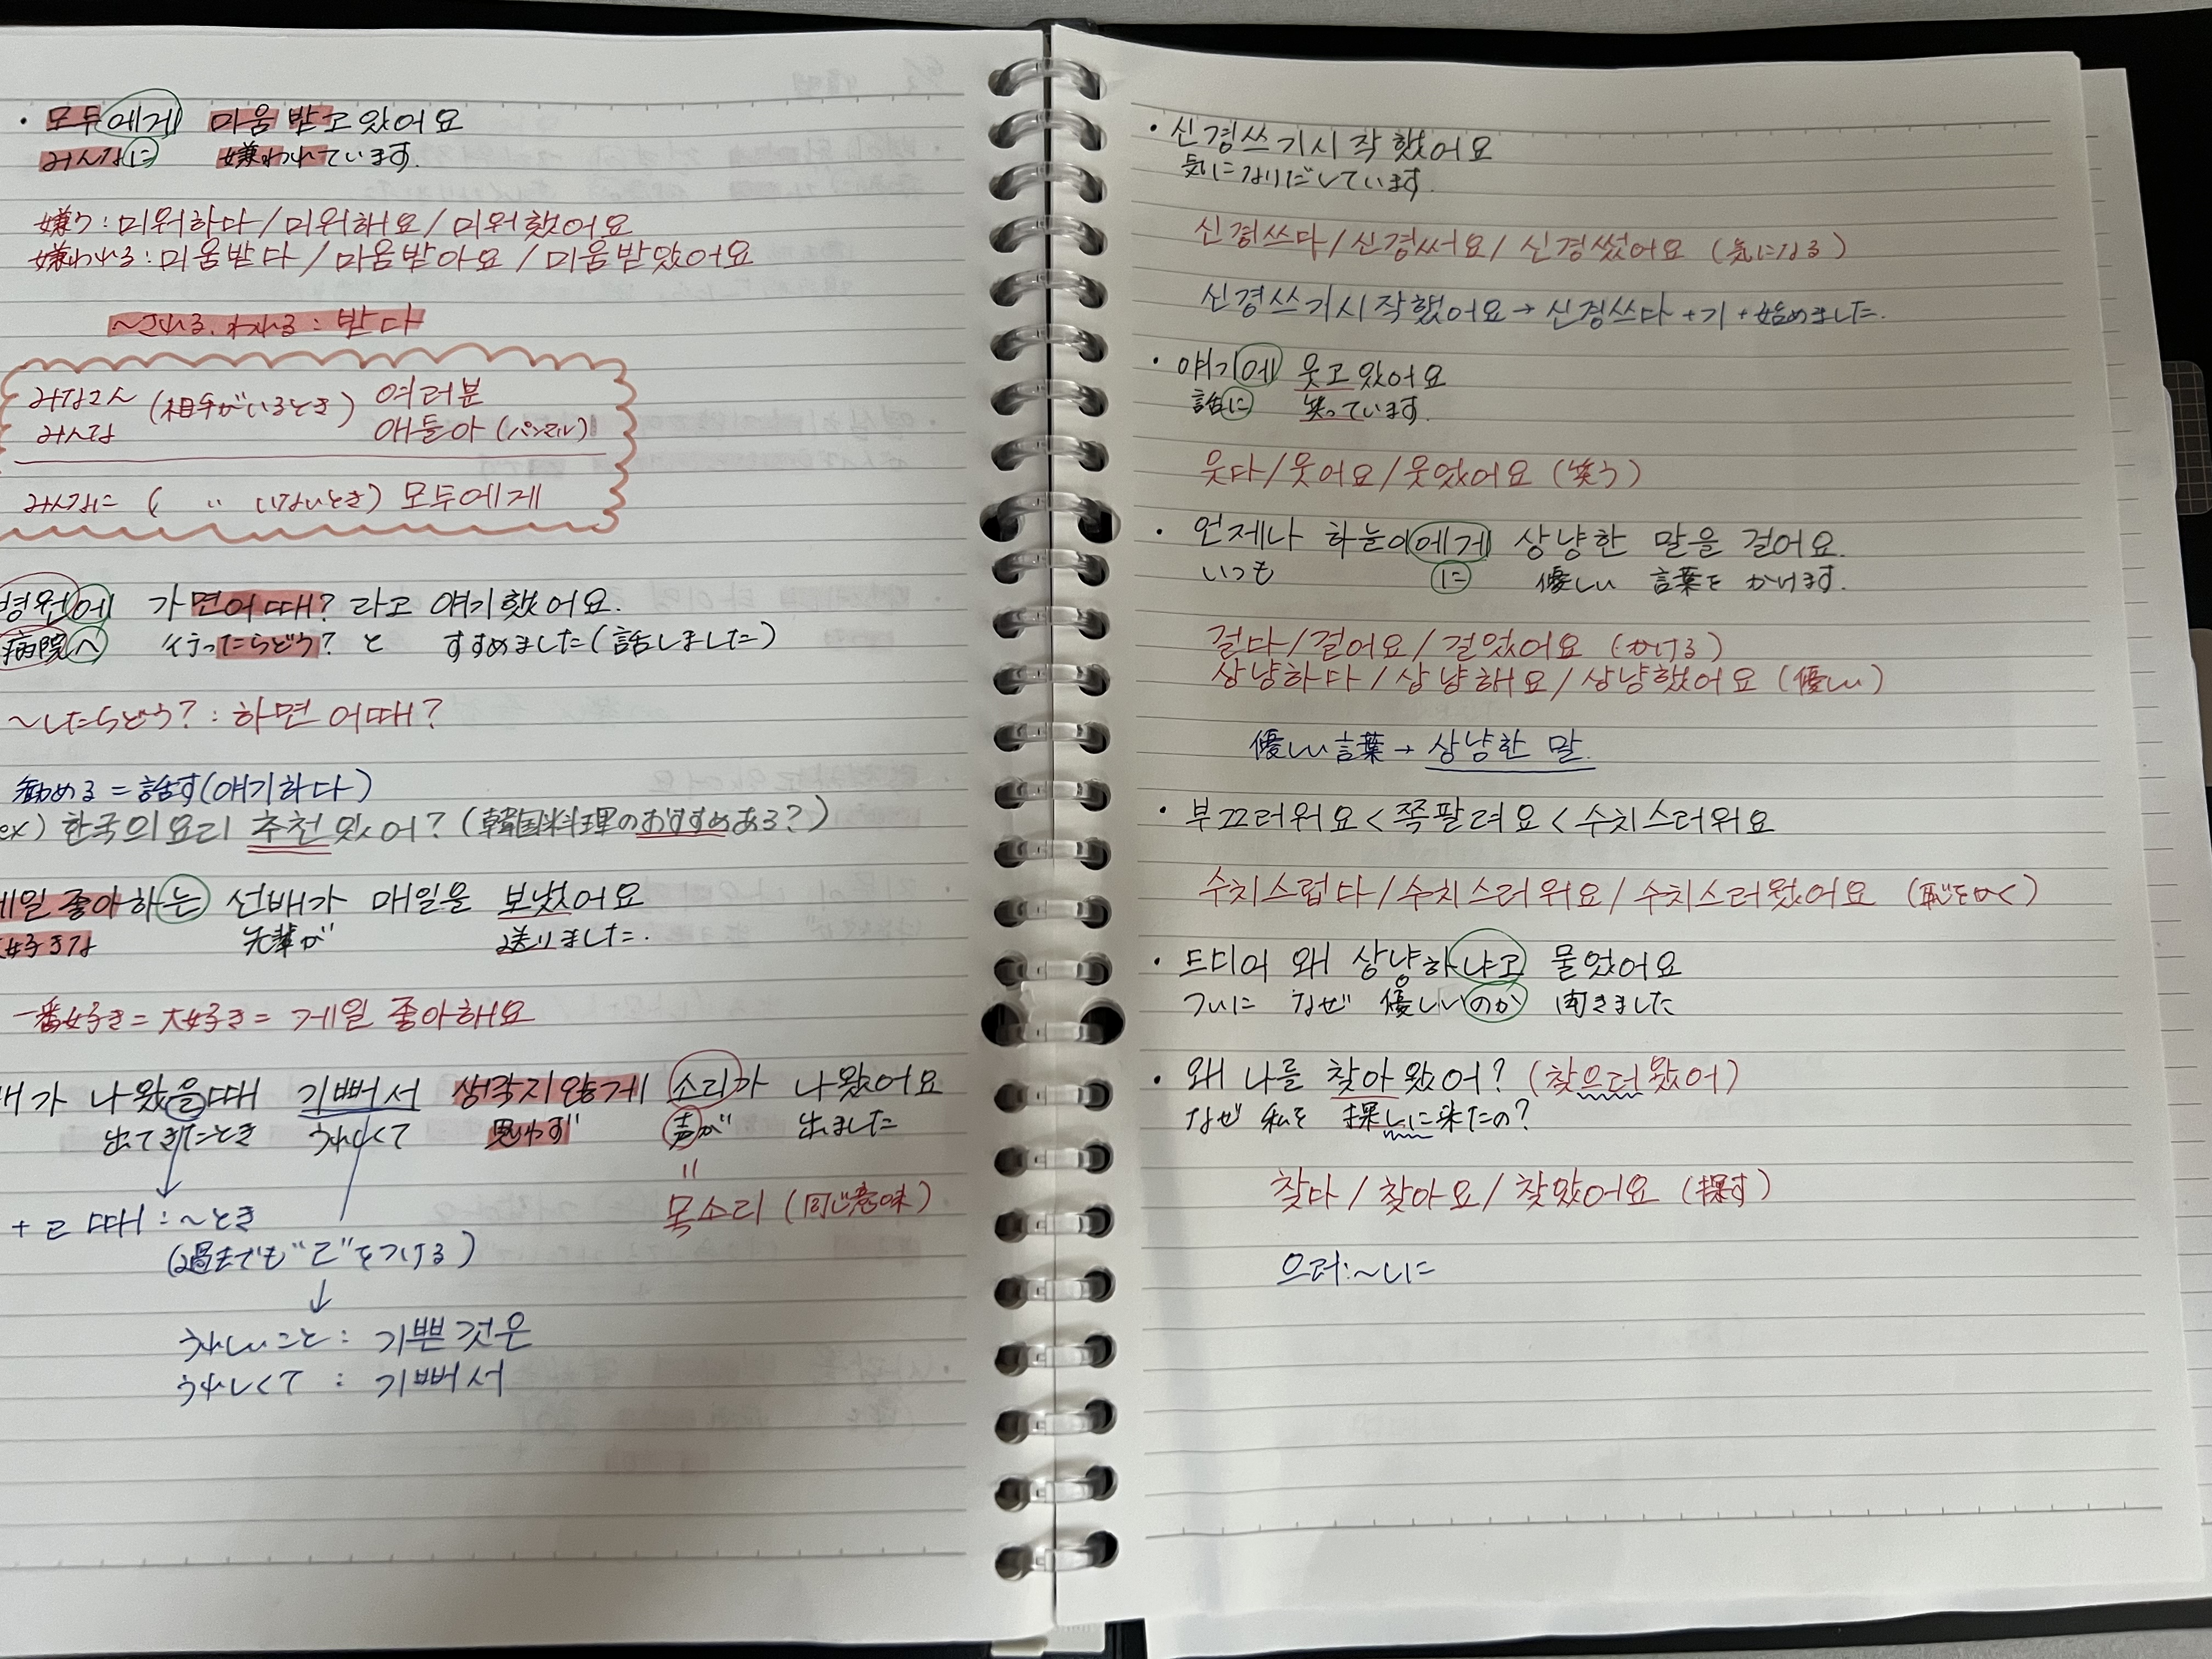 ・모두에게 미움 받고 있어요
みんなに 嫌われています.
嫌う:미워하다/미워해요/미워했어요
嫌われる:미움받다/미움받아요/미움받았어요
~される.われる:받다
みなさん (相手がいるとき) 여러분
みんな 애들아(パンマル)
みんなに ( 〃 いないとき) 모두에게
병원에 가면어때? 라고 얘기했어요.
病院へ 行ったらどう? と すすめました(話しました)
~したらどう?:하면 어때?
勧める=話す(얘기하다)
ex) 한국의요리 추천있어?(韓国料理のおすすめある?)
좋아하는 선배가 매일을 보냈어요
好きな 先輩が 送りました.
一番好き=大好き= 게일 좋아해요
가 나왔을때 기뻐서 생각지않게 소리가 나왔어요
出てきたとき うれしくて 思わず 声が 出ました
〃
목소리(同じ意味)
+ㄹ 때:~とき
(過去でも"ㄹ"をつける)
↓
うれしいこと: 기쁜것은
うれしくて : 기뻐서
・신경쓰기시작했어요
気になりだしています.
신경쓰다/신경써요/신경썼어요 (気になる)
신경쓰기시작했어요→신경쓰다+기+始めました.
・얘기에 웃고있어요
話に 笑っています.
웃다/웃어요/웃었어요(笑う)
・언제나 하눌이에게 상냥한 말을 걸어요.
いつも に 優しい 言葉を かけます.
걸다/걸어요/걸었어요 (かける)
상냥하다/상냥해요/상냥했어요(優しい)
優しい言葉→상냥한 말.
・부끄러워요<쪽팔려요<수치스러워요
수치스럽다/수치스러워요/수치스러웠어요 (恥をかく)
・드디어 왜 상냥하냐고 물었어요
ついに なぜ 優しいのか 聞きました
・왜 나를 찾아왔어?(찾으러왔어)
なぜ 私を 探しに来たの?
찾다/찾아요/찾았어요(探す)
으러:~しに